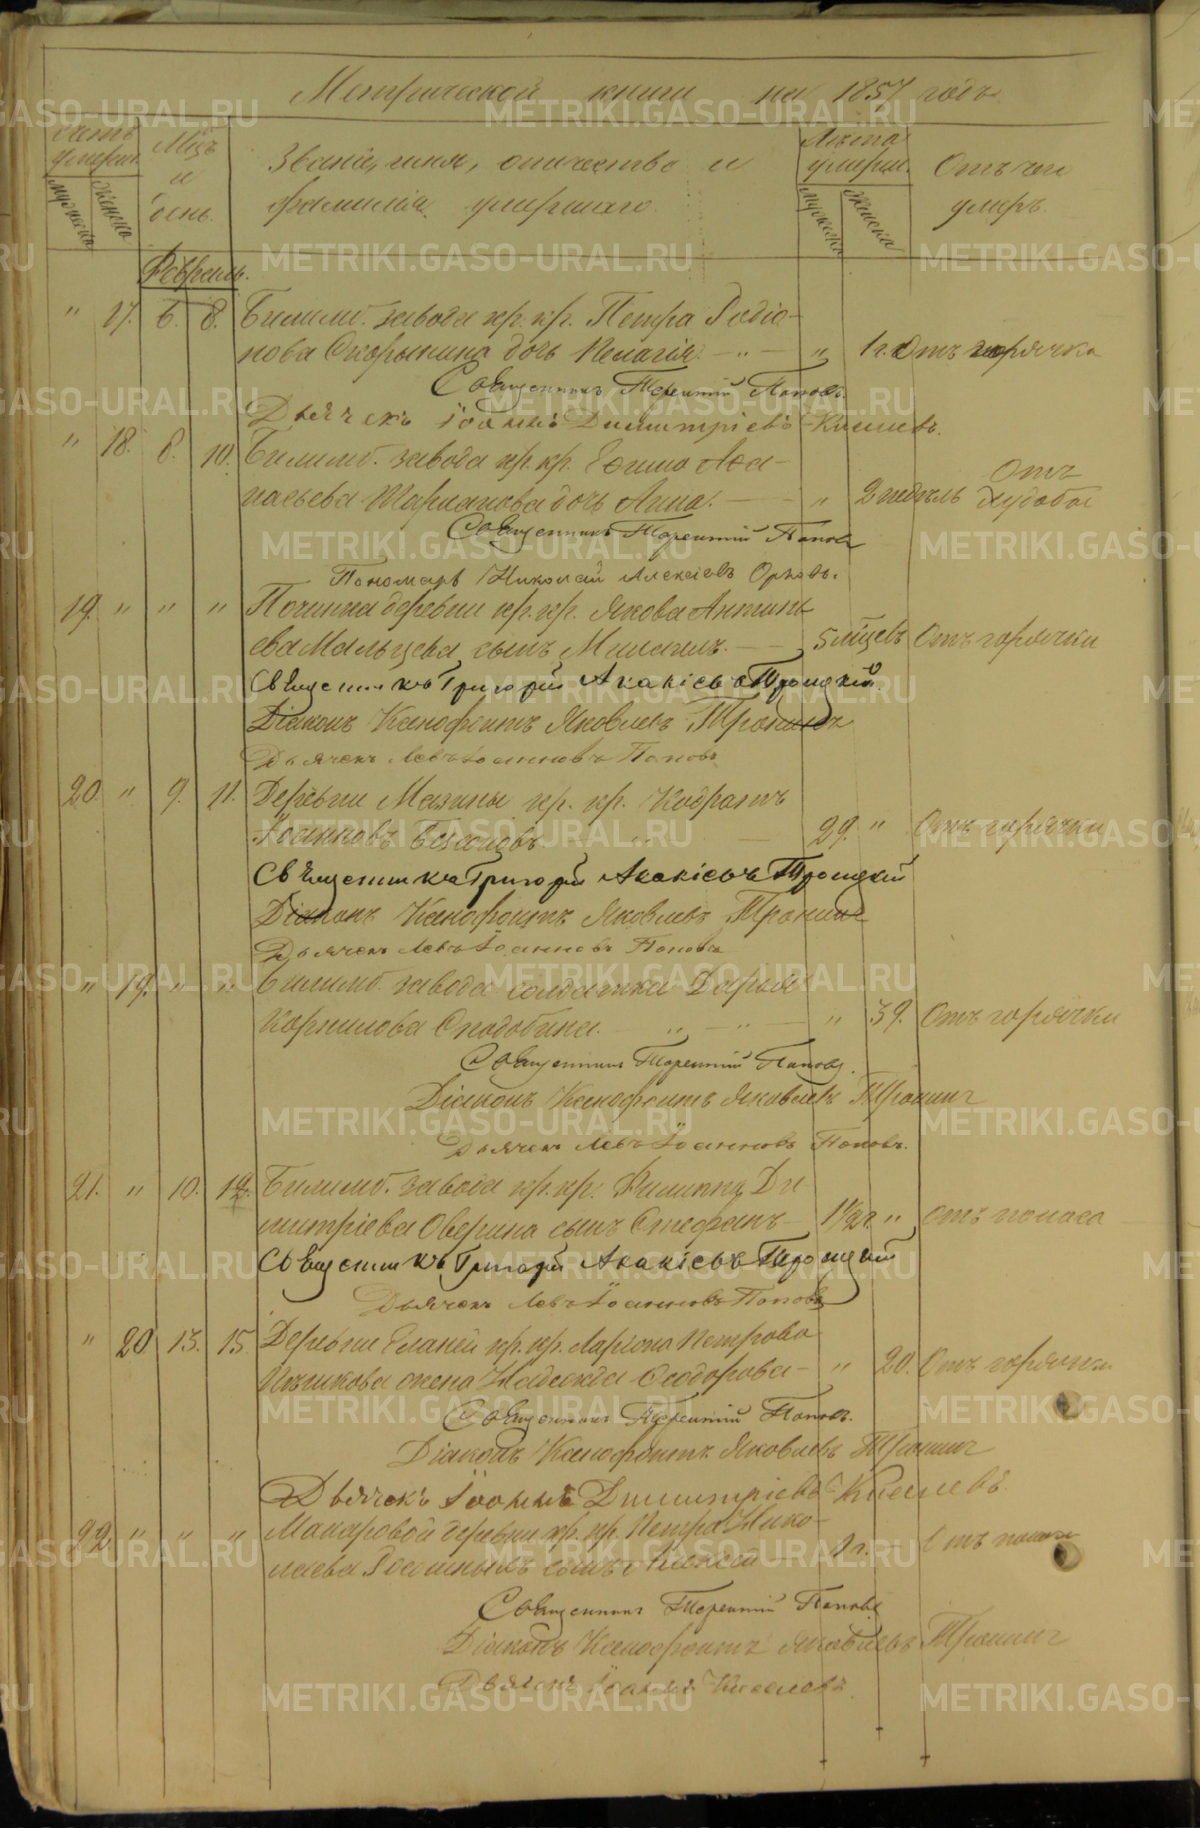 Метрической книги на 1857 годъ
Счетъ умерш.
Мужеска
Женска
Мцъ и день.
Званіе, имя, отчество и фамилія умершаго
Лѣта умерш.
Мужеска
Женска
Отъ чего умеръ.
Февраль.
" 17. 6. 8. Билимб. завода кр. кр. Петра Родіо-
нова Скорынина дочь Пелагія. — " — " 1 г. Отъ горячки
Священникъ Терентій Поповъ.
Дьячекъ Іоаннъ Димитріевъ Киселевъ.
" 18. 8. 10. Билимб. завода кр. кр. Ефима Афа-
насьева дочь Анна. — " 2 недѣль Отъ худобы
Священникъ Терентій Поповъ
Пономарь Николай Алексіевъ Орловъ.
19. " " " Починка деревни кр. кр. Якова Антипь-
ева Мальцева сынъ Михаилъ. — 5 мцевъ Отъ горячки
Священникъ Григорій Акакіевъ Троицкій.
Діаконъ Ксенофонтъ Яковлевъ Тронинъ
Дьячекъ Левъ Іоанновъ Поповъ
20 " 9. 11. Деревни Мазины кр. кр. Кодратъ
Іоанновъ 29. " Отъ горячки
Священникъ Григорій Акакіевъ Троицкій
Діаконъ Ксенофонтъ Яковлевъ Тронинъ
Дьячекъ Левъ Іоанновъ Поповъ
" 19. " " Билимб. завода солдатка Дарья
Корнилова Сподобина. " — " — " 39. Отъ горячки
Священникъ Терентій Поповъ.
Діаконъ Ксенофонтъ Яковлевъ Тронинъ
Дьячекъ Левъ Іоанновъ Поповъ.
21. " 10. 12. Билимб. завода кр. кр. Филиппа Ди-
митріева Оверина сынъ Стефанъ — 1 1/2 г. " Отъ поноса
Священникъ Григорій Акакіевъ Троицкій
Дьячекъ Левъ Іоанновъ Поповъ
" 20 13. 15. Деревни Еланей кр. кр. Ларіона Петрова
жена Надежда Ѳеодорова — " 20. Отъ горячки
Священникъ Терентій Поповъ.
Діаконъ Ксенофонтъ Яковлевъ Тронинъ
Дьячекъ Іоаннъ Димитріевъ Киселевъ.
22 " " " Макаровой деревни кр. кр. Петра Нико-
лаева сынъ Алексій — 1 г. — Отъ поноса
Священникъ Терентій Поповъ
Діаконъ Ксенофонтъ Яковлевъ Тронинъ
Дьячекъ Іоаннъ Киселевъ.
METRIKI.GASO-URAL.RU